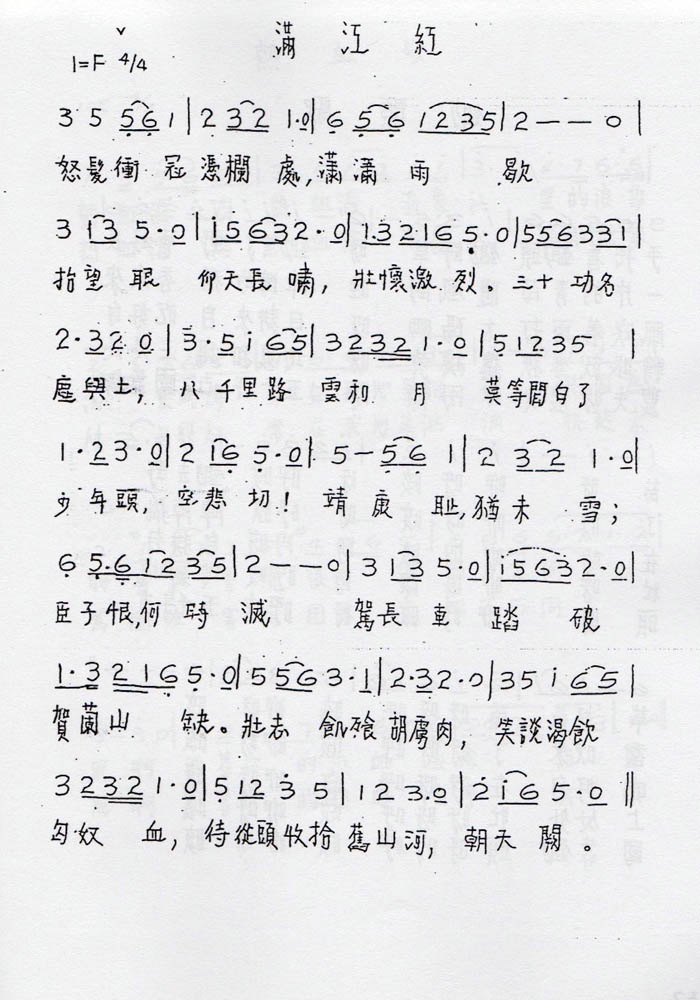 滿江紅
1=F 4/4
3 5 5 6 1 | 2 3 2 1·0 | 6 5 6 1 2 3 5 | 2 — — 0 |
怒髮衝冠憑欄處,瀟瀟雨歇
3 1 3 5·0 | i 5 6 3 2·0 | 1·3 2 1 6 5·0 | 5 5 6 3 3 1 |
抬望眼 仰天長嘯, 壯懷激烈。三十功名
2·3 2 0 | 3·5 i 6 5 | 3 2 3 2 1·0 | 5 1 2 3 5 |
塵與土, 八千里路 雲和月 莫等閒白了
1·2 3·0 | 2 1 6 5·0 | 5 - 5 6 1 | 2 3 2 1·0 |
少年頭, 空悲切! 靖康恥,猶未雪;
6 5·6 1 2 3 5 | 2 — — 0 | 3 1 3 5·0 | i 5 6 3 2·0 |
臣子恨,何時滅 駕長車踏破
1·3 2 1 6 5·0 | 5 5 6 3·1 | 2·3 2·0 | 3 5 i 6 5 |
賀蘭山 缺。壯志 飢飱胡虜肉, 笑談渴飲
3 2 3 2 1·0 | 5 1 2 3 5 | 1 2 3·0 | 2 1 6 5·0 ||
匈奴 血, 待從頭收拾舊山河, 朝天闕。